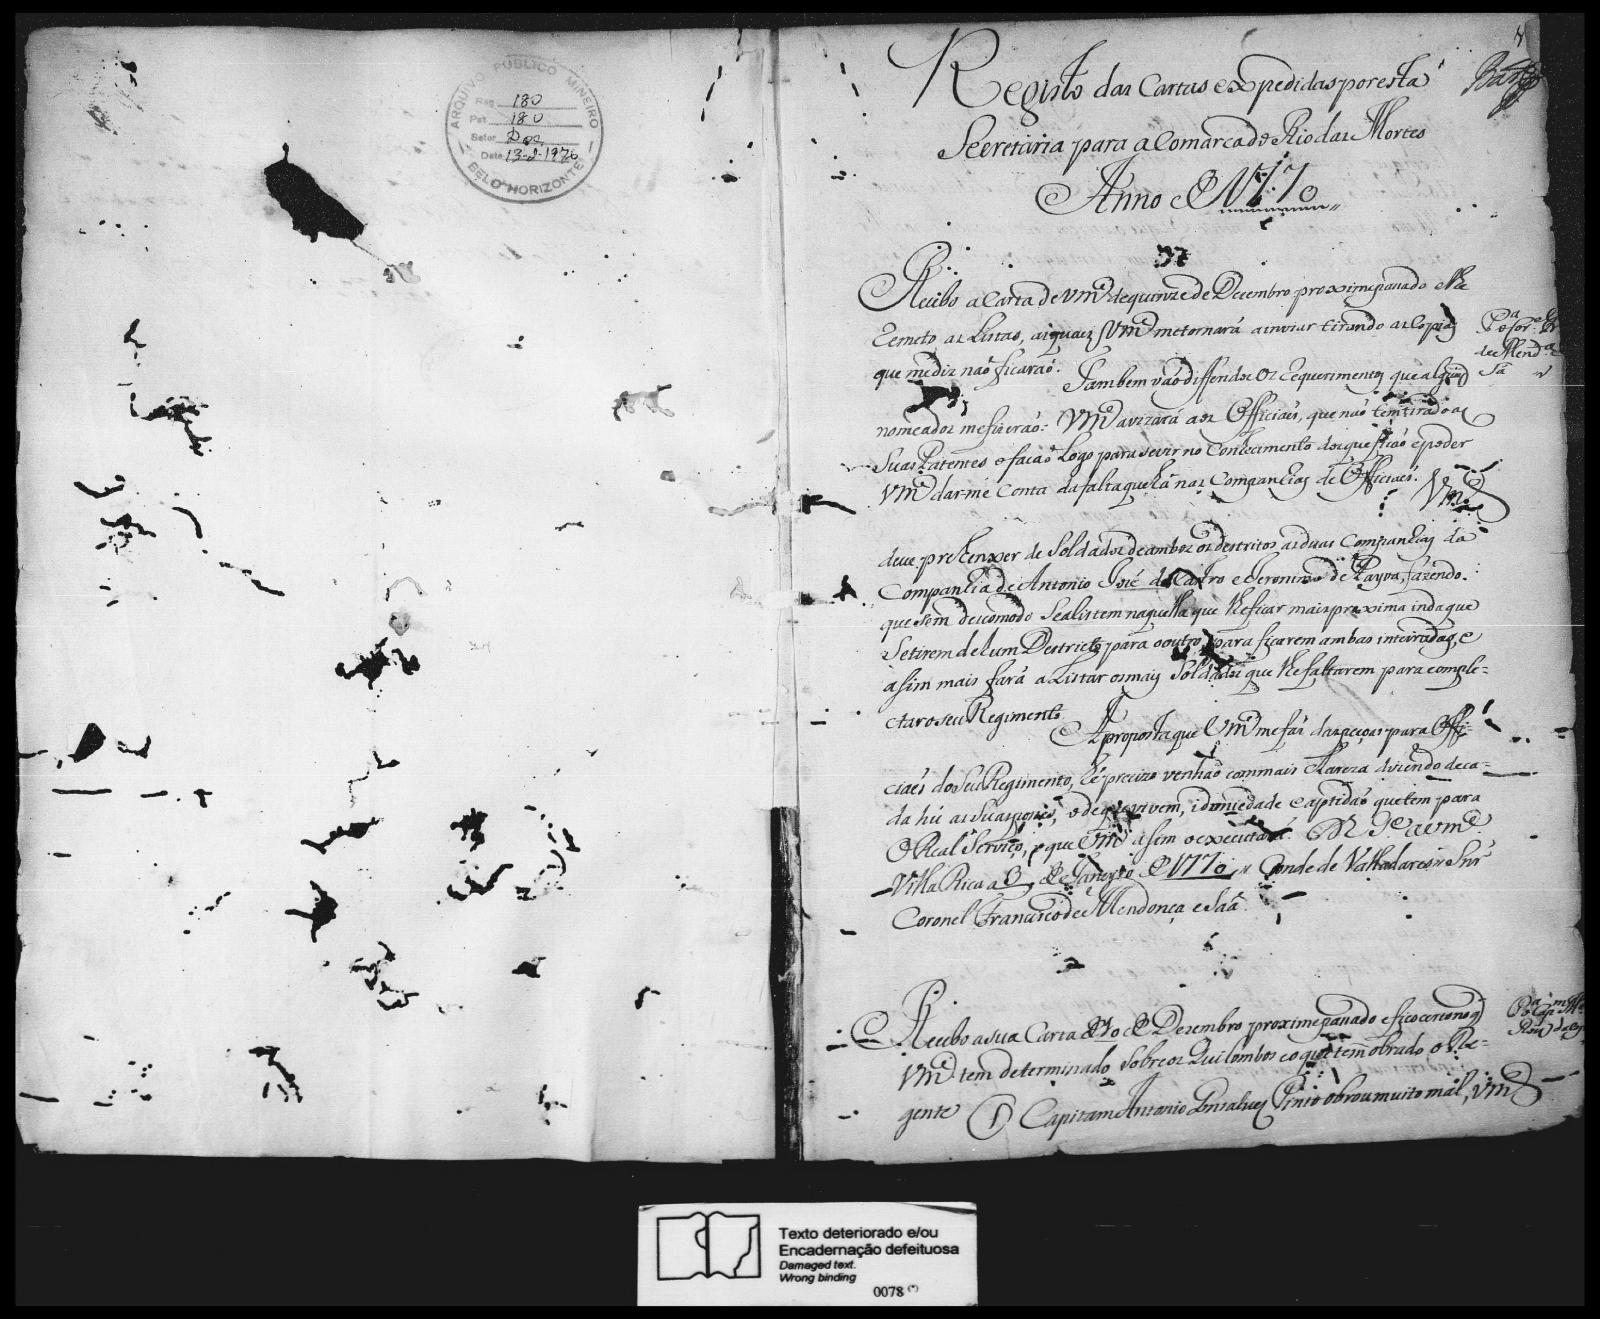 ARQUIVO PÚBLICO MINEIRO
Reg. 180
Pat. 180
Setor Doc.
Data 13-2-1976
BELO HORIZONTE
Registo das Cartas expedidas por esta
Secretaria para a Comarca do Rio das Mortes
Anno de 1770
Recebo a Carta de Vmce de quinze de Dezembro proximo passado e lhe
remeto as Listas, as quaes Vmce me tornará a inviar tirando as Copias
que me diz não ficarão. Tambem vão differidos os requerimentos que alguns
nomeados me fizerão: Vmce avizará aos Officiaes, que não tem tirado as
suas Patentes o fação Logo para se vir no Conhecimento dos que ficão e poder
Vmce dar-me Conta da falta que há nas Companhias de Officiaes. Vmce
deve prehenxer de Soldados de ambos os destritos as duas Companhias da
Companhia de Antonio José de Castro e Jeronimo de Payva, fazendo
que sem descomodo se alistem naquella que lhe ficar mais proxima inda que
se tirem de hum Destricto para o outro para ficarem ambas inteiradas, e
asim mais fará aListar os mais Soldados que lhe faltarem para comple-
ctar o seu Regimento.
A proposta que Vmce me fás das pessoas para Offi-
ciaes do seu Regimento, hé precizo venhão com mais clareza dizendo de ca-
da hú as suas posses, o de que vivem, idoniedade e aptidão que tem para
o Real Serviço, e que Vmce asim o executará. Ds Gde a vmce
Villa Rica a 3 de Janeyro de 1770 // Conde de Valladares // Snr
Coronel Francisco de Mendonça e Saá
Pa o
de Mendça
Sá
Recebo a sua Carta de 10 de Dezembro proximo passado e fico certo no q
Vmce tem determinado sobre os Quilombos e o que tem obrado o Re-
gente O Capitam Antonio Gonsalves Pinto obrou muito mal, Vmce
Pa o Capm
Texto deteriorado e/ou
Encadernação defeituosa
Damaged text.
Wrong binding
0078